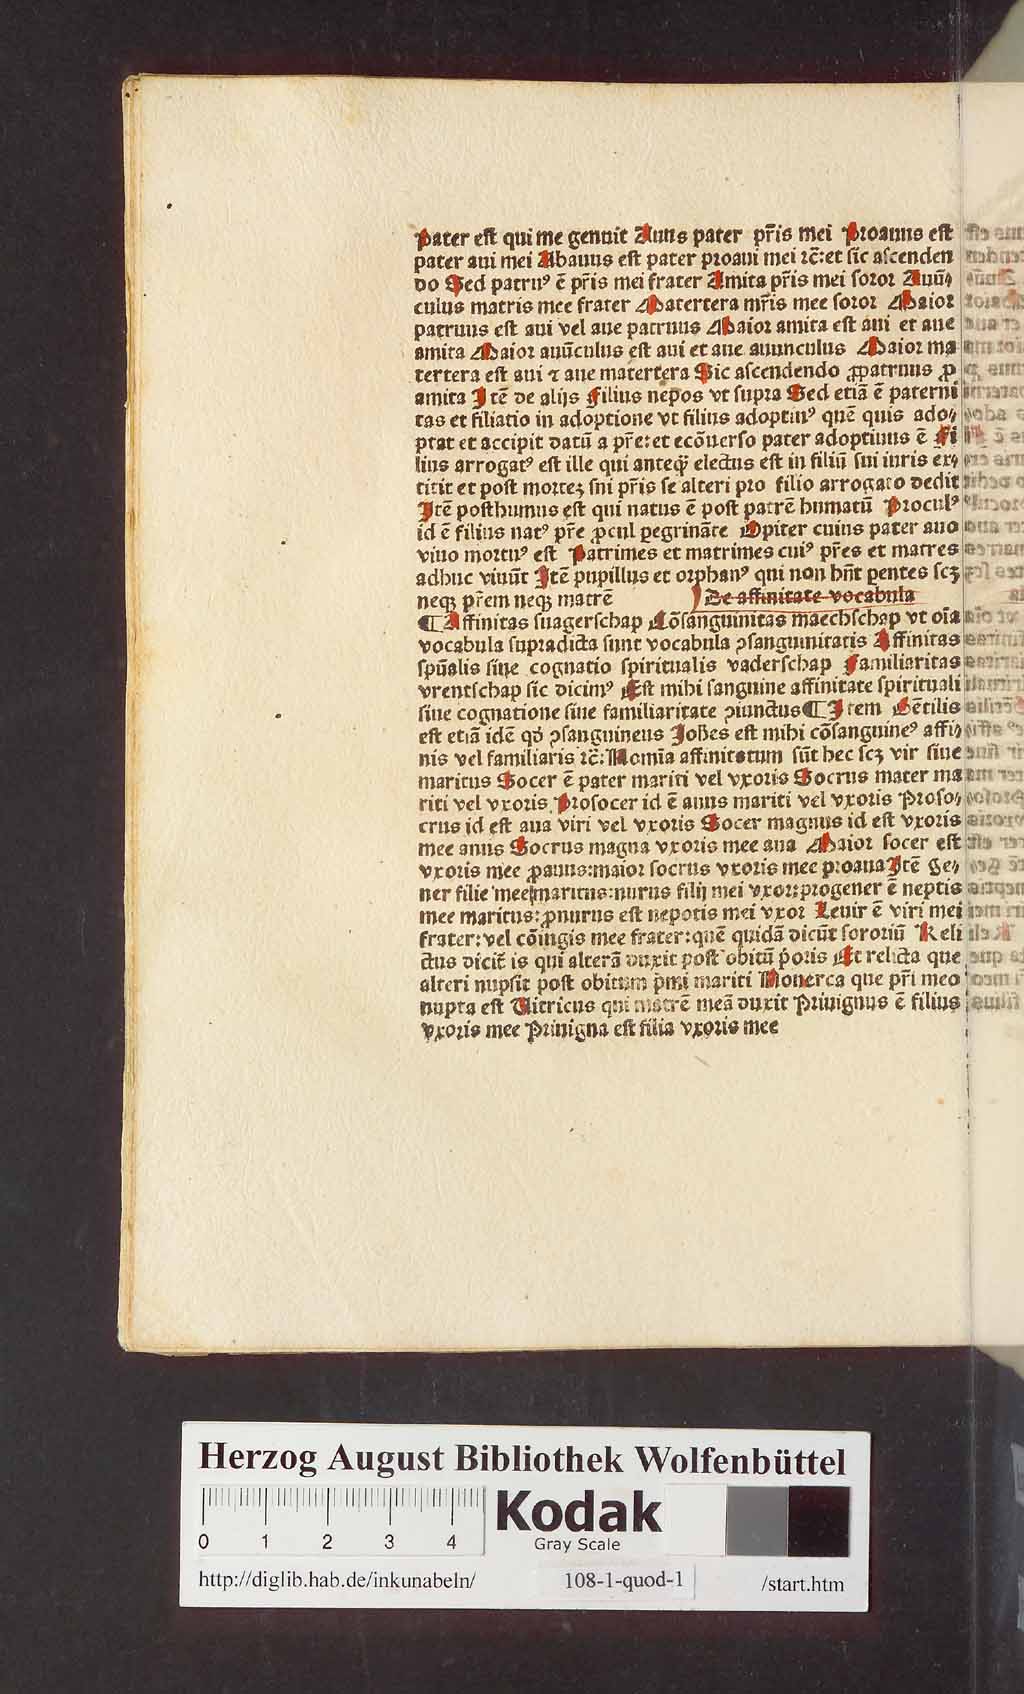 Pater est qui me genuit Auus pater pr̃is mei Proauus est
pater aui mei Abauus est pater proaui mei ⁊c̃: et sic ascenden
do Sed patruꝰ ẽ pr̃is mei frater Amita pr̃is mei soror Auũ⸗
culus matris mee frater Matertera mr̃is mee soror Maior
patruus est aui vel aue patruus Maior amita est aui et aue
amita Maior auũculus est aui et aue auunculus Maior ma
tertera est aui ⁊ aue matertera Sic ascendendo ꝓpatruus ꝓ
amita Itẽ de alijs Filius nepos vt supra Sed etiã ẽ paterni
tas et filiatio in adoptione vt filius adoptiuꝰ quẽ quis ado⸗
ptat et accipit datũ a pr̃e: et ecõuerso pater adoptiuus ẽ Fi
lius arrogatꝰ est ille qui anteq̃ȝ electus est in filiũ sui iuris ex⸗
titit et post mortez sui pr̃is se alteri pro filio arrogato dedit
Itẽ posthumus est qui natus ẽ post patrẽ humatũ Proculꝰ
id ẽ filius natꝰ pr̃e ꝓcul ꝑegrinãte Opiter cuius pater auo
viuo mortuꝰ est Patrimes et matrimes cuiꝰ pr̃es et matres
adhuc viuũt Itẽ pupillus et orphanꝰ qui non hñt ꝑentes scȝ
neqȝ pr̃em neqȝ matrẽ De affinitate vocabula
¶ Affinitas suagerschap Cõsanguinitas maechschap vt oĩa
vocabula supradicta sunt vocabula ꝯsanguinitatis Affinitas
spũalis siue cognatio spiritualis vaderschap Familiaritas
vrentschap sic dicimꝰ Est mihi sanguine affinitate spirituali
siue cognatione siue familiaritate ꝯiunctus ¶ Item Gẽtilis
est etiã idẽ qđ ꝯsanguineus Joħes est mihi cõsanguineꝰ affi⸗
nis vel familiaris ⁊c̃: Nomĩa affinitatum sũt hec scȝ vir siue
maritus Socer ẽ pater mariti vel vxoris Socrus mater ma
riti vel vxoris Prosocer id ẽ auus mariti vel vxoris Proso⸗
crus id est aua viri vel vxoris Socer magnus id est vxoris
mee auus Socrus magna vxoris mee aua Maior socer est
vxoris mee ꝓauus: maior socrus vxoris mee proaua Itẽ Ge⸗
ner filie mee maritus: nurus filij mei vxor: progener ẽ neptis
mee maritus: ꝓnurus est nepotis mei vxor Leuir ẽ viri mei
frater: vel cõiugis mee frater: quẽ quidã dicũt sororiũ Reli
ctus dicit̃ is qui alterã duxit post obitũ p̃oris Et relicta que
alteri nupsit post obitum p̃mi mariti Nouerca que pr̃i meo
nupta est Uitricus qui matrẽ meã duxit Priuignus ẽ filius
vxoris mee Priuigna est filia vxoris mee
Herzog August Bibliothek Wolfenbüttel
0 1 2 3 4
Kodak
Gray Scale
http://diglib.hab.de/inkunabeln/ 108-1-quod-1 /start.htm